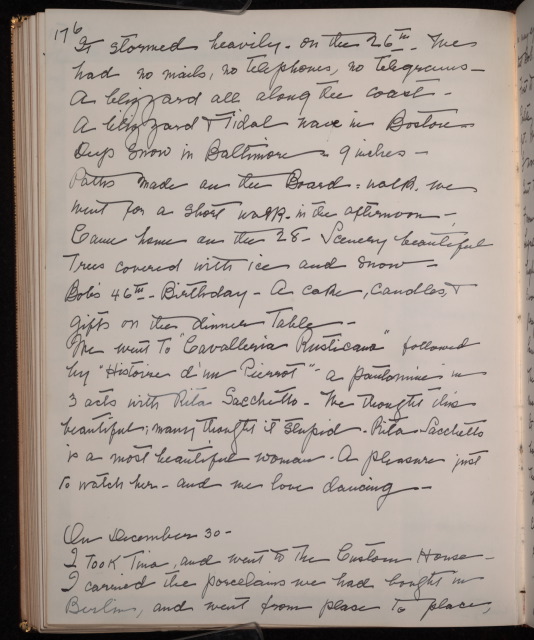 176
It stormed heavily - on the 26th. We
had no mails, no telephones, no telegrams -
A blizzard all along the coast -
A blizzard & Tidal wave in Boston -
Deep snow in Baltimore - 9 inches -
Paths made on the Board-walk. we
went for a short walk - in the afternoon -
Came home on the 28 - Scenery beautiful
Trees covered with ice and snow -
Bob's 46th - Birthday - A cake, Candles, &
gifts on the dinner Table -
We went to "Cavalleria Rusticana" followed
by "Histoire d'un Pierrot" a pantomime in
3 acts with Rita Sacchetto - We thought this
beautiful; many thought it stupid - Rita Sacchetto
is a most beautiful woman - A pleasure just
to watch her - and we love dancing -
On December 30 -
I took Tina, and went to the Custom House -
I carried the porcelains we had bought in
Berlin, and went from place to place,